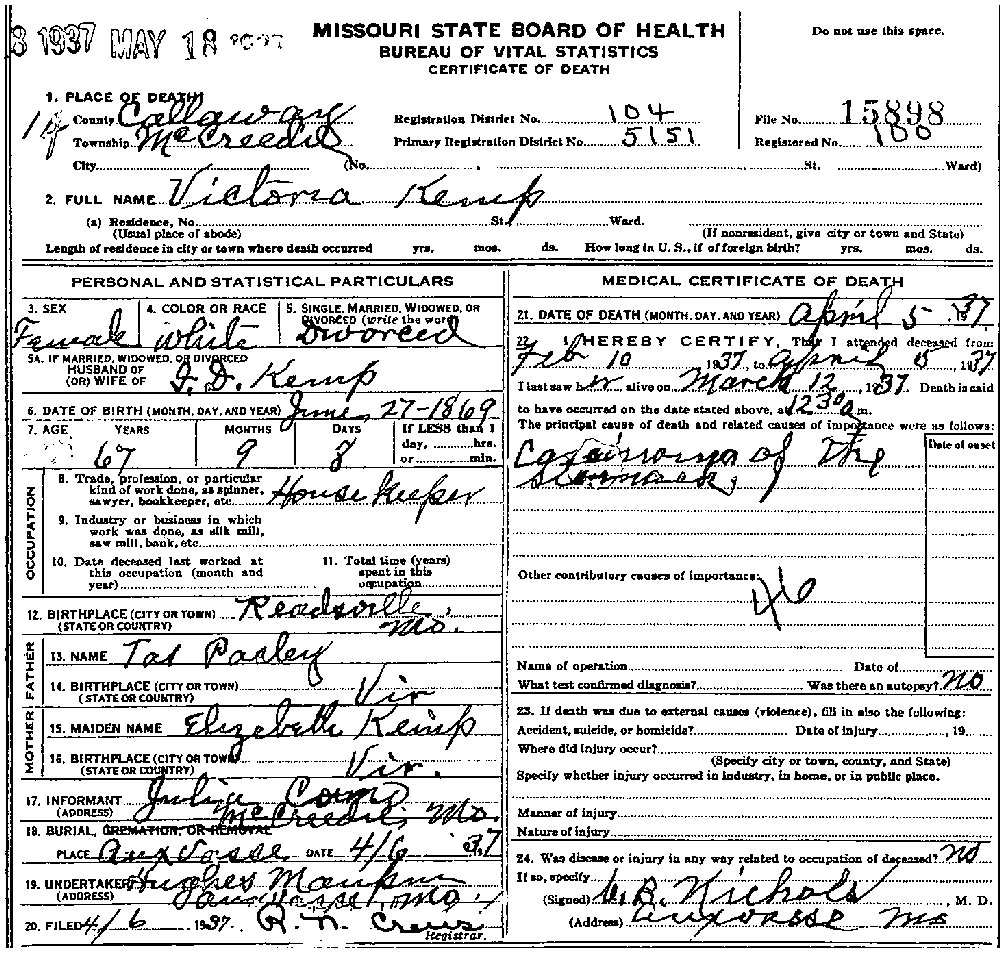 8 1937 MAY 18 1937
MISSOURI STATE BOARD OF HEALTH
BUREAU OF VITAL STATISTICS
CERTIFICATE OF DEATH
Do not use this space.
1. PLACE OF DEATH
County Callaway Registration District No. 104 File No. 15898
Township McCreedie Primary Registration District No. 5151 Registered No. 100
City (No. , St. Ward)
2. FULL NAME Victoria Kemp
(a) Residence, No. St. Ward.
(Usual place of abode) (If nonresident, give city or town and State)
Length of residence in city or town where death occurred yrs. mos. ds. How long in U. S., if of foreign birth? yrs. mos. ds.
PERSONAL AND STATISTICAL PARTICULARS
3. SEX 4. COLOR OR RACE 5. SINGLE, MARRIED, WIDOWED, OR
DIVORCED (write the word)
Female White Divorced
5A. IF MARRIED, WIDOWED, OR DIVORCED
HUSBAND OF
(OR) WIFE OF J. D. Kemp
6. DATE OF BIRTH (MONTH, DAY, AND YEAR) June, 27-1869
7. AGE YEARS MONTHS DAYS If LESS than 1
day, hrs.
or min.
67 9 8
OCCUPATION
8. Trade, profession, or particular
kind of work done, as spinner,
sawyer, bookkeeper, etc. House Keeper
9. Industry or business in which
work was done, as silk mill,
saw mill, bank, etc.
10. Date deceased last worked at
this occupation (month and
year)
11. Total time (years)
spent in this
occupation
12. BIRTHPLACE (CITY OR TOWN) Readsville,
(STATE OR COUNTRY) Mo.
FATHER
13. NAME Tat Pasley
14. BIRTHPLACE (CITY OR TOWN)
(STATE OR COUNTRY) Vir
MOTHER
15. MAIDEN NAME Elizabeth Kemp
16. BIRTHPLACE (CITY OR TOWN)
(STATE OR COUNTRY) Vir.
17. INFORMANT Julia
(ADDRESS) McCreedie, Mo.
18. BURIAL, CREMATION, OR REMOVAL
PLACE Auxvasse DATE 4/6 1937
19. UNDERTAKER Hughes Maupin
(ADDRESS) Auxvasse, Mo.
20. FILED 4/6 1937 R. N. Crews
Registrar.
MEDICAL CERTIFICATE OF DEATH
21. DATE OF DEATH (MONTH, DAY, AND YEAR) April 5 1937
22. I HEREBY CERTIFY, That I attended deceased from
Feb 10 1937, to April 5, 1937
I last saw her alive on March 12, 1937. Death is said
to have occurred on the date stated above, at 1230 a m.
The principal cause of death and related causes of importance were as follows:
Date of onset
Carcinoma of the
stomach,
Other contributory causes of importance:
46
Name of operation Date of
What test confirmed diagnosis? Was there an autopsy? No
23. If death was due to external causes (violence), fill in also the following:
Accident, suicide, or homicide? Date of injury , 19
Where did injury occur?
(Specify city or town, county, and State)
Specify whether injury occurred in industry, in home, or in public place.
Manner of injury
Nature of injury
24. Was disease or injury in any way related to occupation of deceased? No
If so, specify
(Signed) Nichols, M. D.
(Address) Auxvasse Mo